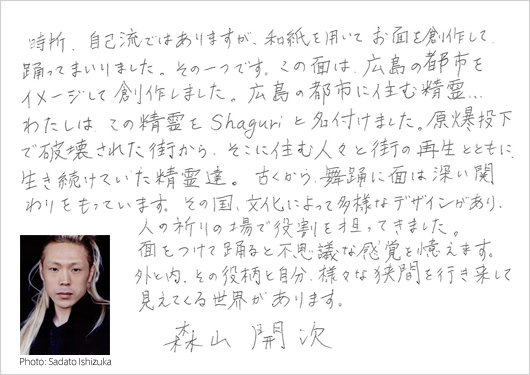 時折、自己流ではありますが、和紙を用いてお面を創作して
踊ってまいりました。その一つです。この面は、広島の都市を
イメージして創作しました。広島の都市に住む精霊…
わたしは、この精霊をShaguriと名付けました。原爆投下
で破壊された街から、そこに住む人々と街の再生とともに、
生き続けていた精霊達。古くから、舞踊に面は深い関
わりをもっています。その国、文化によって多様なデザインがあり、
人の祈りの場で役割を担ってきました。
面をつけて踊ると不思議な感覚を憶えます。
外と内、その役柄と自分、様々な狭間を行き来して
見えてくる世界があります。
森山 開次
Photo: Sadato Ishizuka